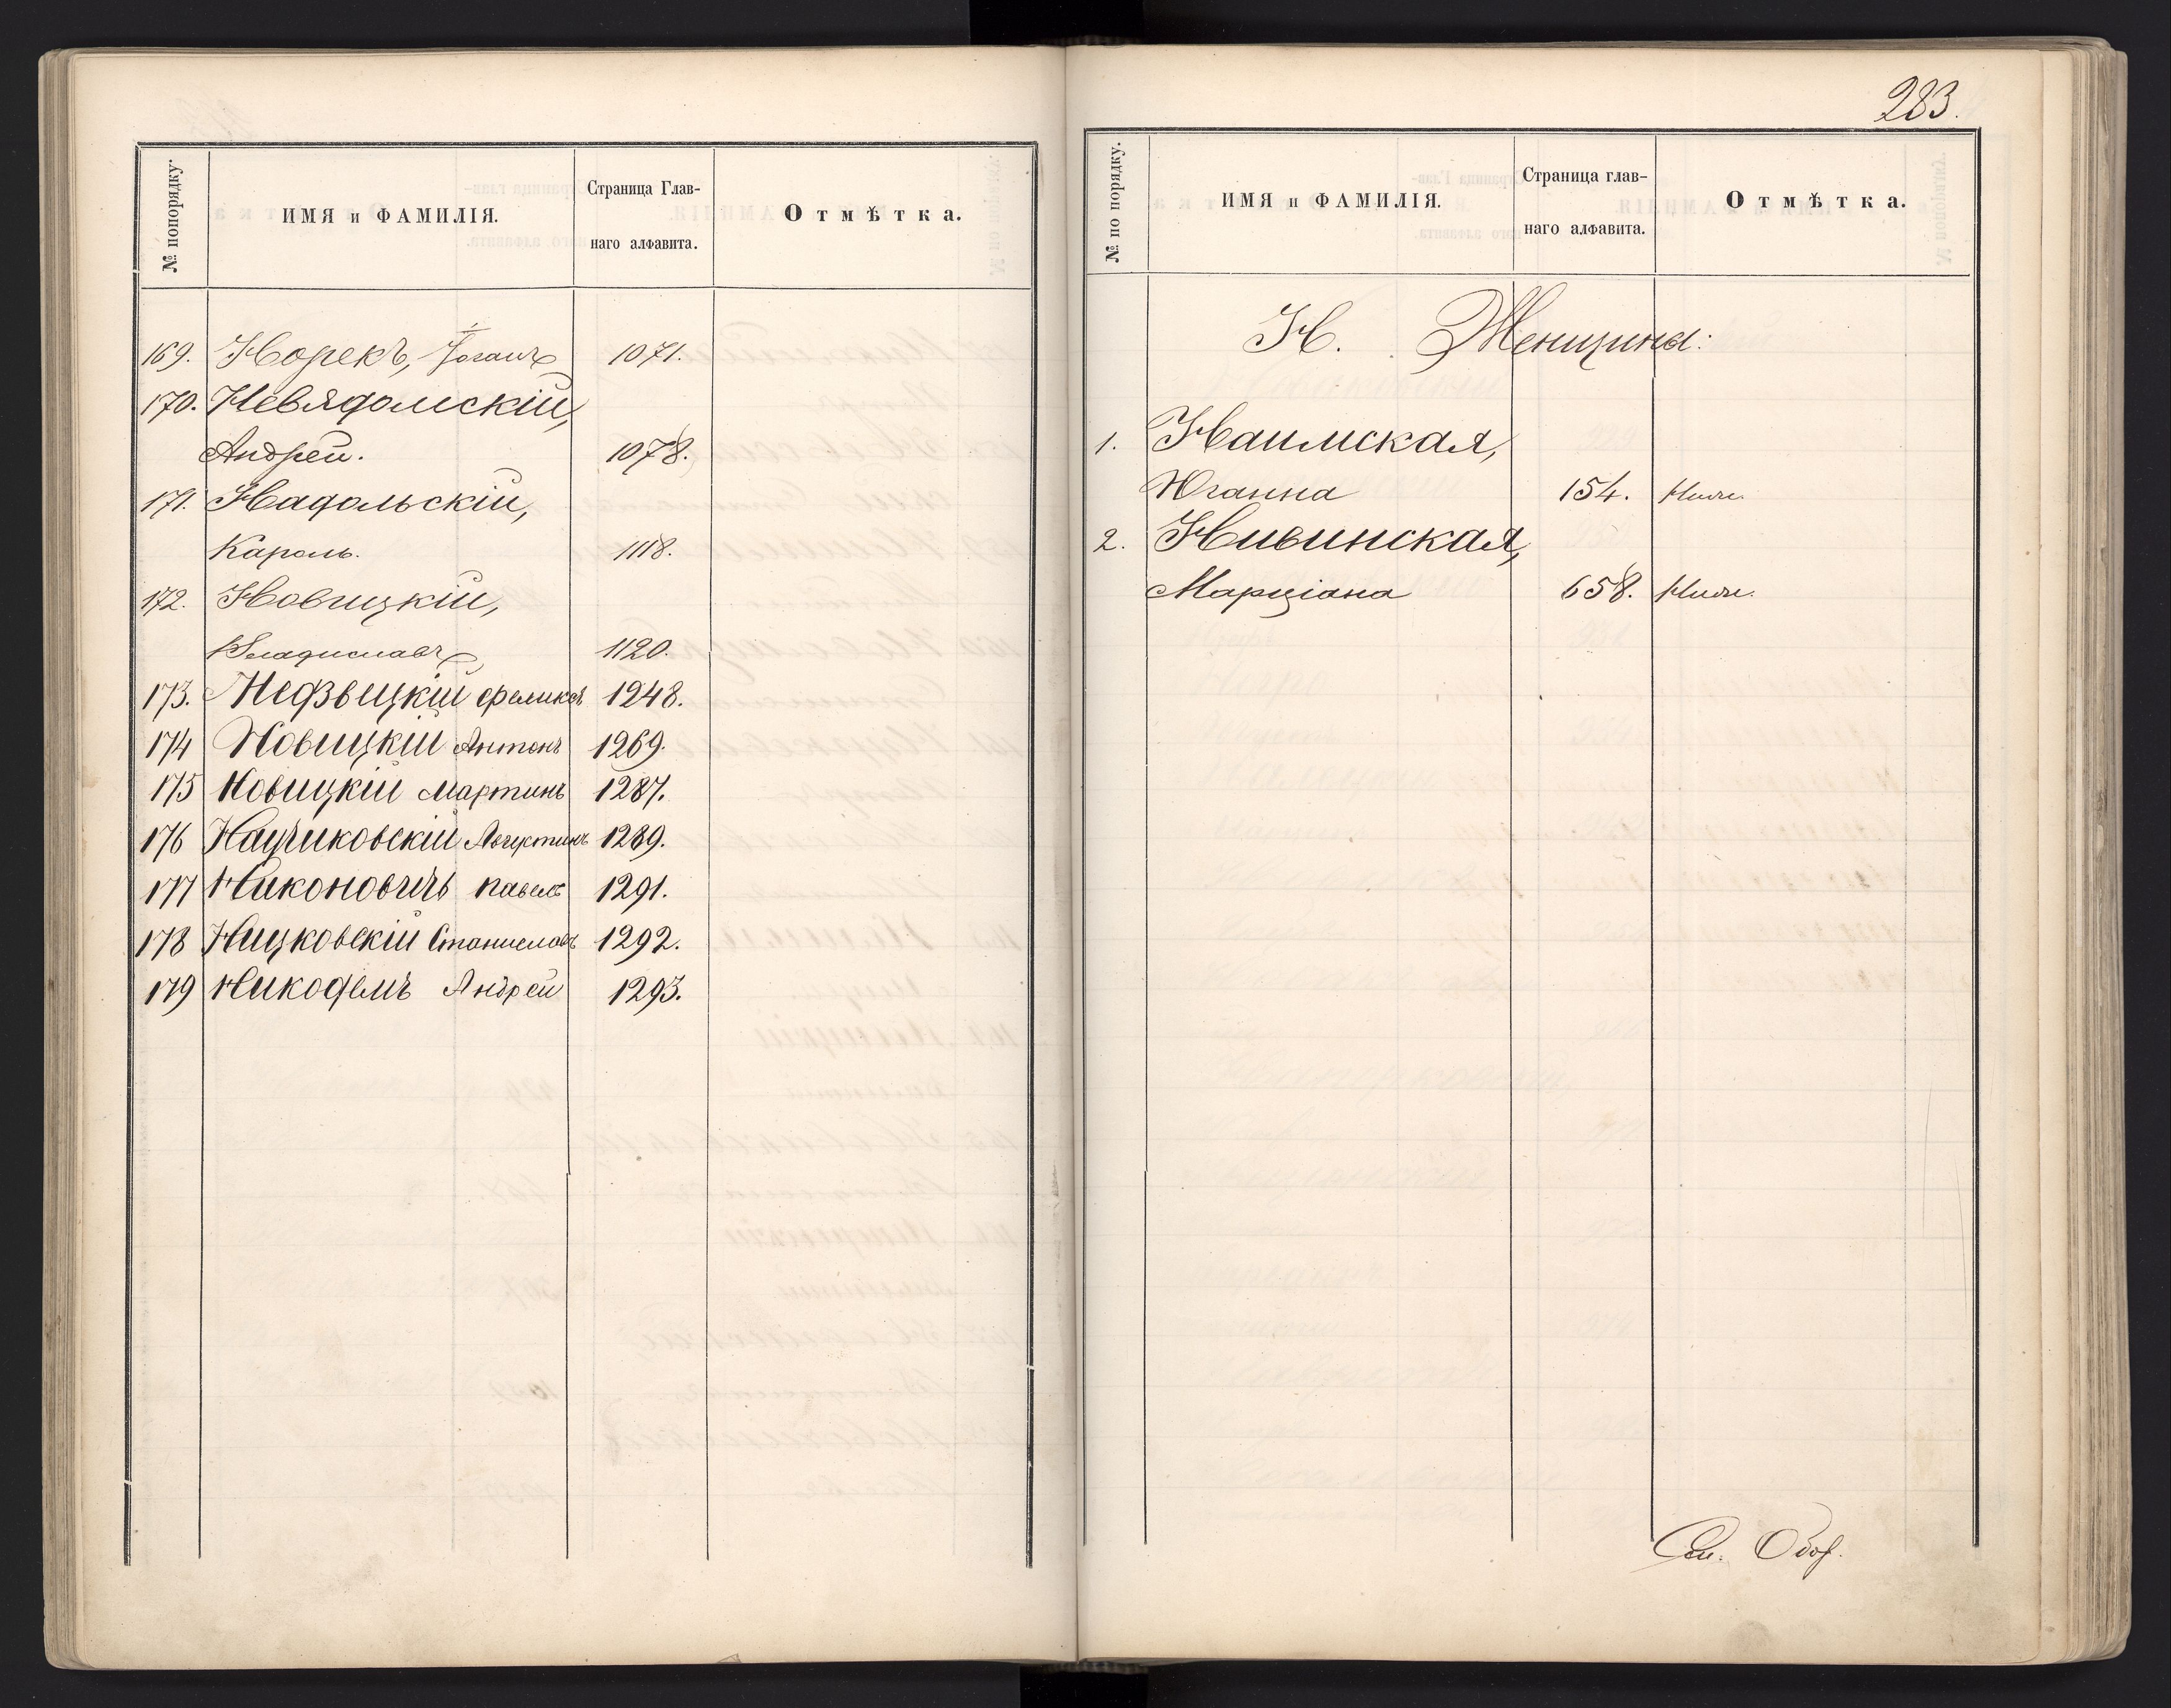 № попорядку.
ИМЯ и ФАМИЛІЯ.
Страница Глав-
наго алфавита.
Отмѣтка.
169. Норекъ, Іоганъ 1071.
170. Невядомскій,
Андрей. 1078.
171. Надольскій,
Кароль. 1118.
172. Новицкій,
Владиславъ 1120.
173. Недзвецкій Феликсъ 1248.
174 Новицкій Антонъ 1269.
175 Новицкій Мартинъ 1287.
176 Августинъ 1289.
177 Никоновичъ Павелъ 1291.
178 Ницковскій Станиславъ 1292.
179 Никодемъ Андрей 1293.
283.
№ по порядку.
ИМЯ и ФАМИЛІЯ.
Страница глав-
наго алфавита.
Отмѣтка.
Н. Женщины:
1. Наимская,
Юганна 154.
2. Нивинская,
Марціана 658.
См. Обор.